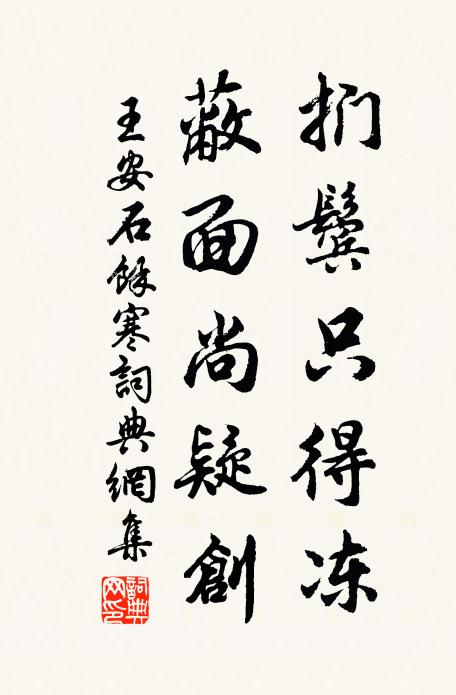 捫鬢只得冻
蔽面尚疑創
王安石餘寒詞典網集
詞典网印